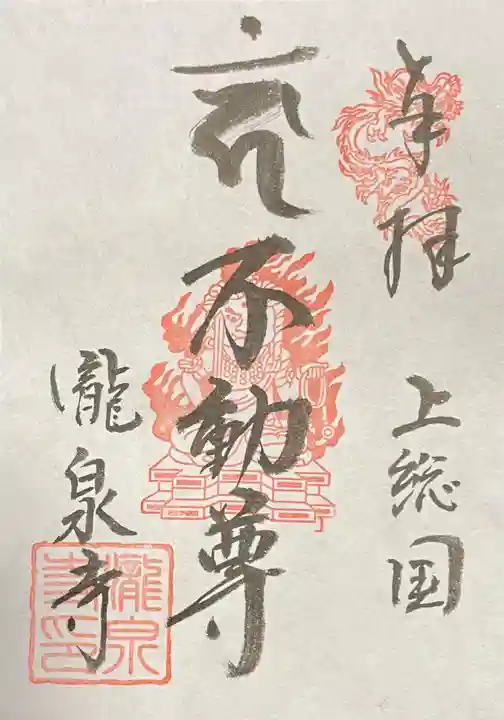 奉拝 上総国
𑖮𑖯𑖽 不動尊
瀧泉寺
瀧泉寺印